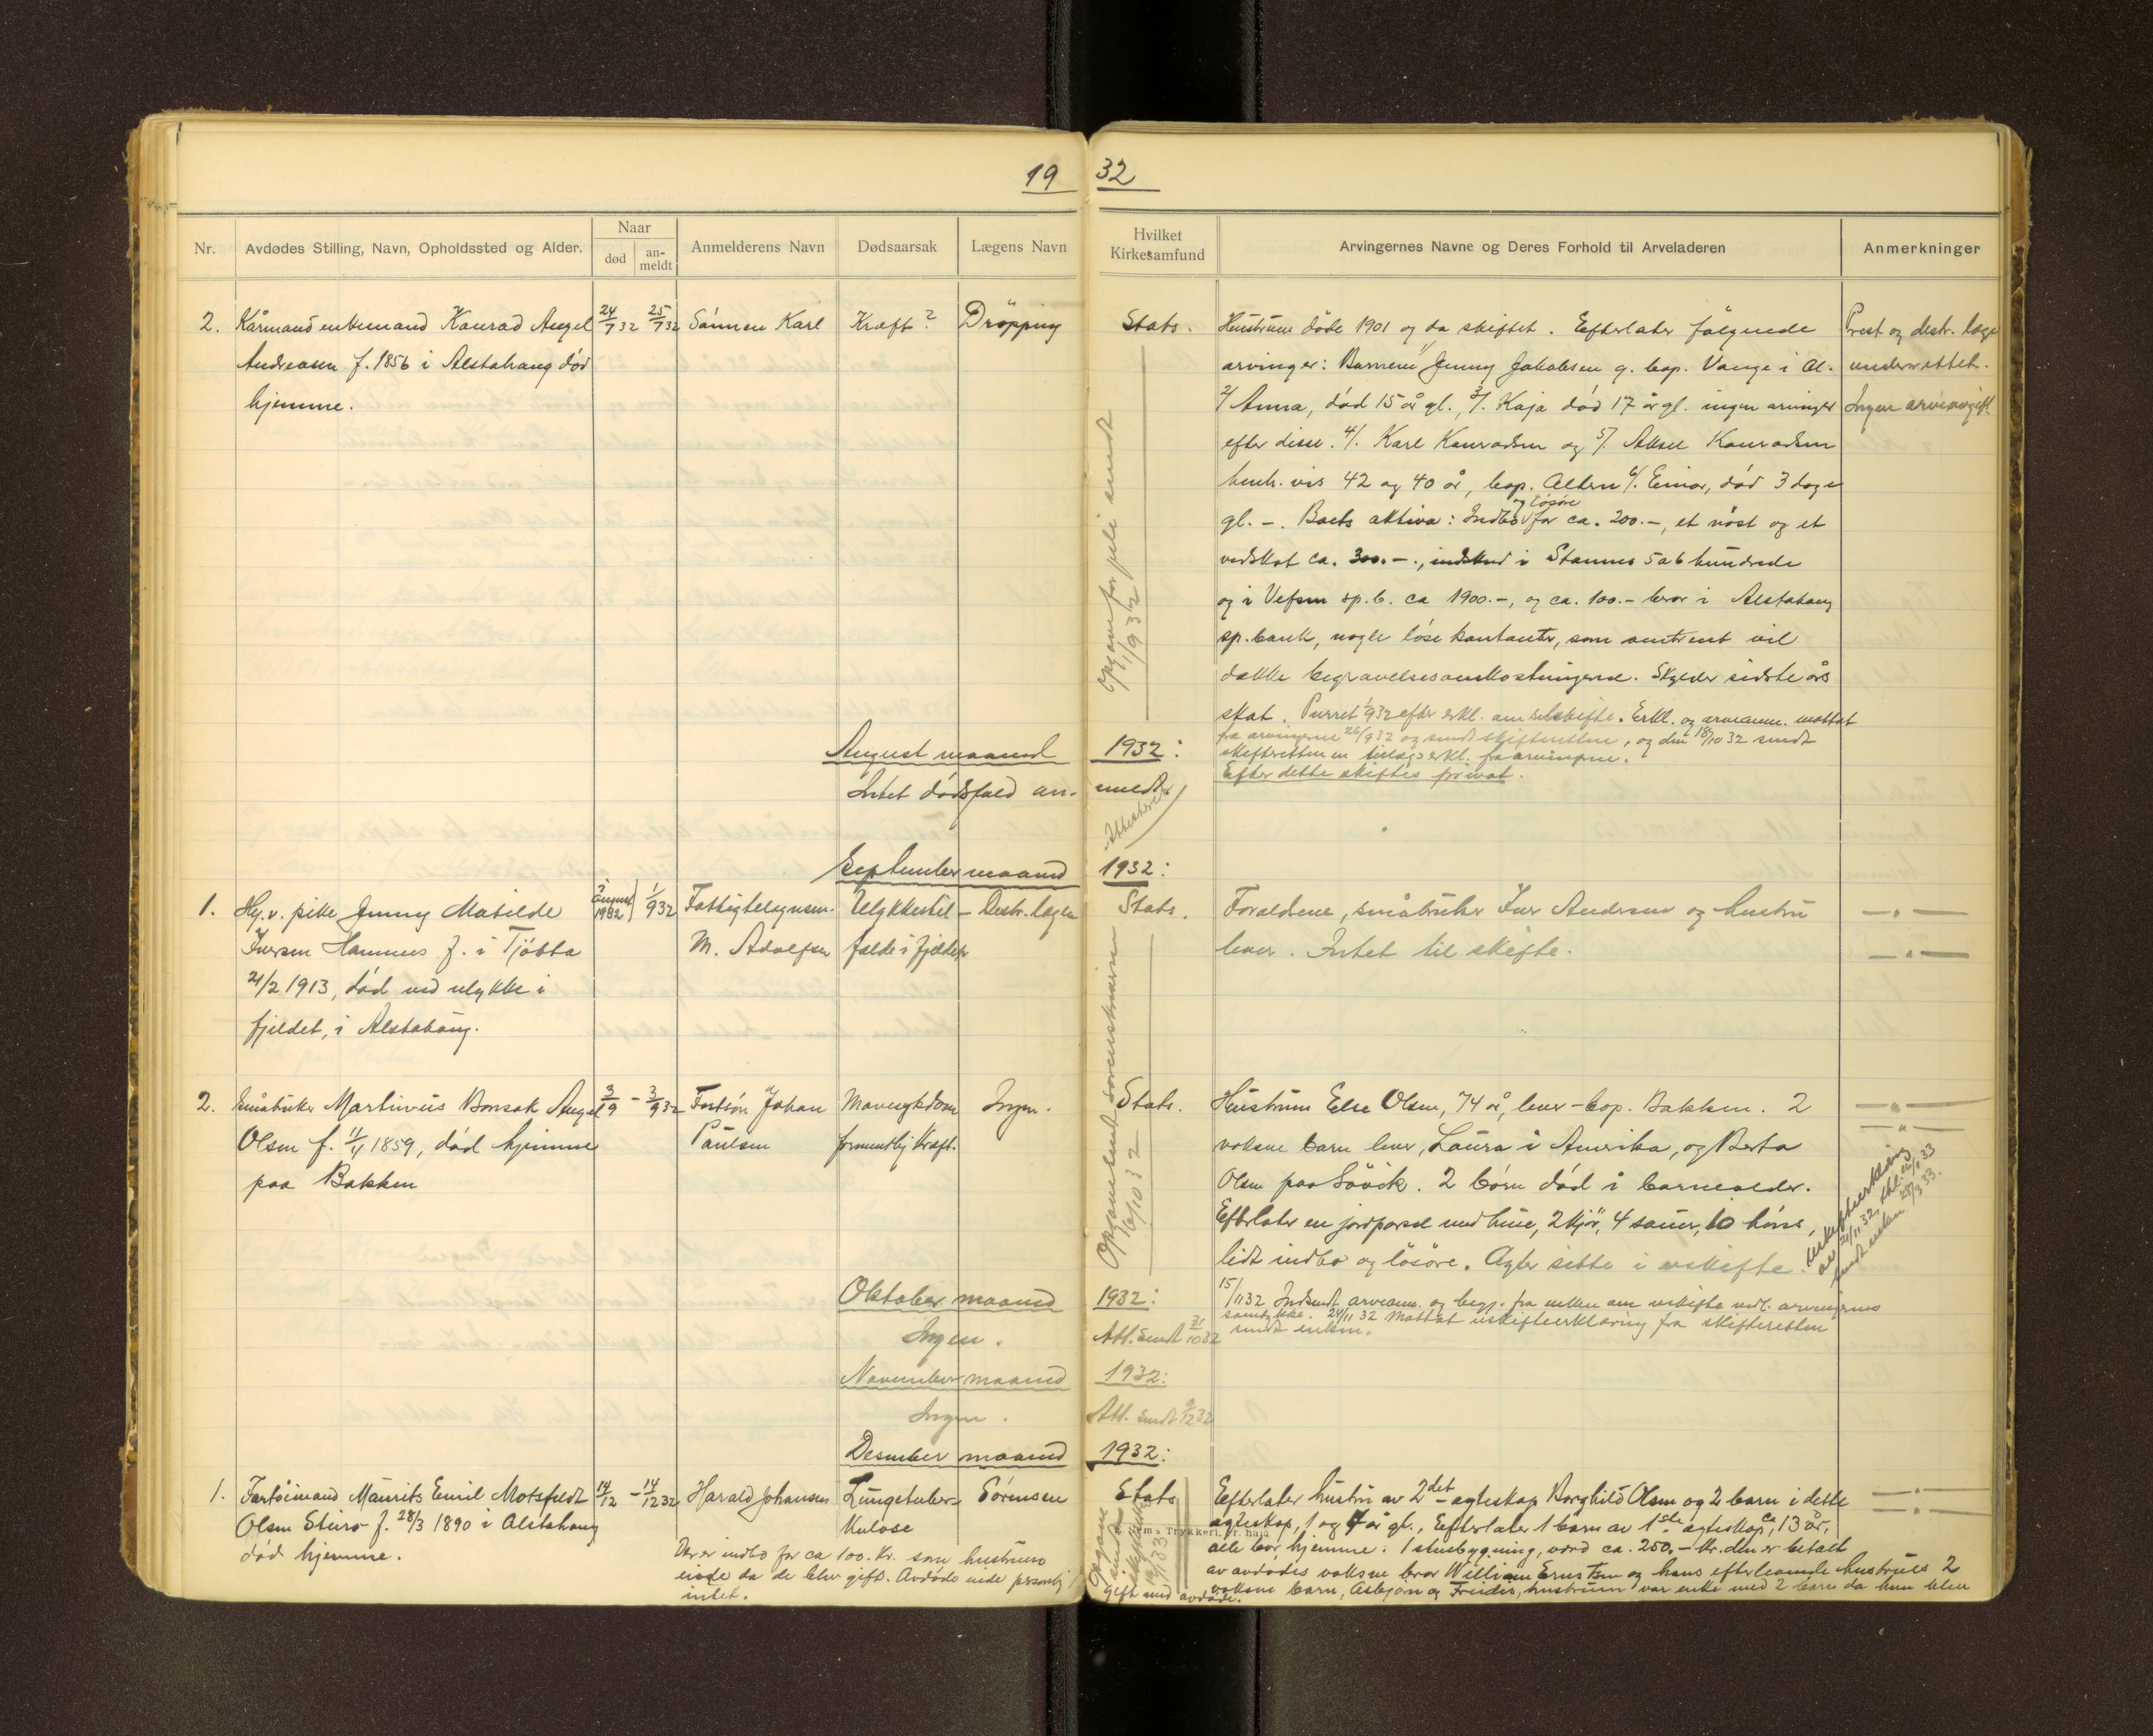 19 32
Nr.
Avdødes Stilling, Navn, Opholdssted og Alder.
Naar
død
an-
meldt
Anmelderens Navn
Dødsaarsak
Lægens Navn
Hvilket
Kirkesamfund
Arvingernes Navne og Deres Forhold til Arveladeren
Anmerkninger
2. Kårmand enkemand Konrad Angel
Andreasen f. 1856 i Alstahaug død
hjemme.
24/7 32 25/7 32
Sønnen Karl
Kræft?
Dröpping
Stats.
Opgave for juli sendt
1/9 32
Hustruen døde 1901 og da skiftet. Efterlater følgende
arvinger: Barnene 1/ Jenny Jakobsen g. bop. Vange i Al.
2/ Anna, død 15 år gl., 3/. Kaja død 17 år gl. ingen arvinger
efter disse. 4/. Karl Konradsen og 5/. Aksel Konradsen
henh. vis 42 og 40 år, bop. Alteren 6/. Einar, død 3 dage
gl. -. Boets aktiva: Indbo og løsøre for ca. 200.-, et nøst og et
vedskot ca. 300.-., indskud i Stamnes 5 a 6 hundrede
og i Vefsn sp.b. ca 1900.-, og ca. 100.- beror i Alstahaug
sp.bank, nogle løse kontanter, som omtrent vil
dække begravelsesomkostningerne. Skylder sidste års
skat. Purret 1/9 32 efter erkl. om selvskifte. Erkl. og arveanm. mottat
fra arvingerne 26/9 32 og sendt skifteretten, og den 18/10 32 sendt
skifteretten en tillægserkl. fra arvingerne.
Efter dette skiftes privat.
Prest og distr. læge
underrettet.
Ingen arveavgift.
August maaned 1932:
Intet dødsfald anmeldt.
September maaned 1932:
1. Ug. v. pike Jenny Matilde
Iversen Hamnes f. i Tjøtta
21/2 1913, død ved ulykke i
fjeldet, i Alstahaug.
i august 1932) 1/9 32
Fattigtilsynsm.
M. Adolfsen
Ulykkestil-
fælde i fjeldet
Distr. lægen
Stats.
Forældrene, småbruker Iver Andersen og hustru
lever. Intet til skifte.
2. Småbruker Martinus Bonsak Angel
Olsen f. 11/4 1859, død hjemme
paa Bakken
3/9 - 3/9 32
Fostsøn Johan
Paulsen
Mavesykdom
formentlig kræft.
Ingen.
Stats.
Hustruen Else Olsen, 74 år, lever - bop. Bakken. 2
voksne barn lever, Laura i Amerika, og Berta
Olsen paa Søvik. 2 børn død i barnealder.
Efterlater en jordparsel med huse, 2 kjør, 4 sauer, 10 høns,
lidt indbo og løsøre. Agter sitte i uskifte.
15/11 32 Indsendt arveanm. og begj. fra enken om uskifte vedl. arvingernes
samtykke. 24/11 32 Mottat uskifteerklæring fra skifteretten
sendt enken.
Uskifteerklæring
av 21/11 32,
sendt enken 28/3 33.
Oktober maaned 1932:
Ingen. Att. sendt 31/10 32
November maaned 1932:
Ingen. Att. sendt 9/12 32
Desember maaned 1932:
1. Fartøimand Maurits Emil Motsfeldt
Olsen Sturo f. 28/3 1890 i Alstahaug
død hjemme.
14/12 - 14/12 32
Harald Johansen
Lungetuber-
kulose
Sørensen
Stats
Der er indbo for ca 100. Kr. som hustruen
eiede da de blev gift. Avdøde eiede personlig
intet.
Efterlater hustru av 2det egteskap Borghild Olsen og 2 barn i dette
egteskap, 1 og 7 år gl., Efterlater 1 barn av 1ste egteskap, ca 13 år,
alle bor hjemme. 1 stuebygning, værd ca. 250.- kr. den er betalt
av avdødes voksne bror William Ernstsen og hans efterlevende hustrues 2
voksne barn, Asbjørn og Freidis, hustruen var enke med 2 barn da hun blev
gift med avdøde.